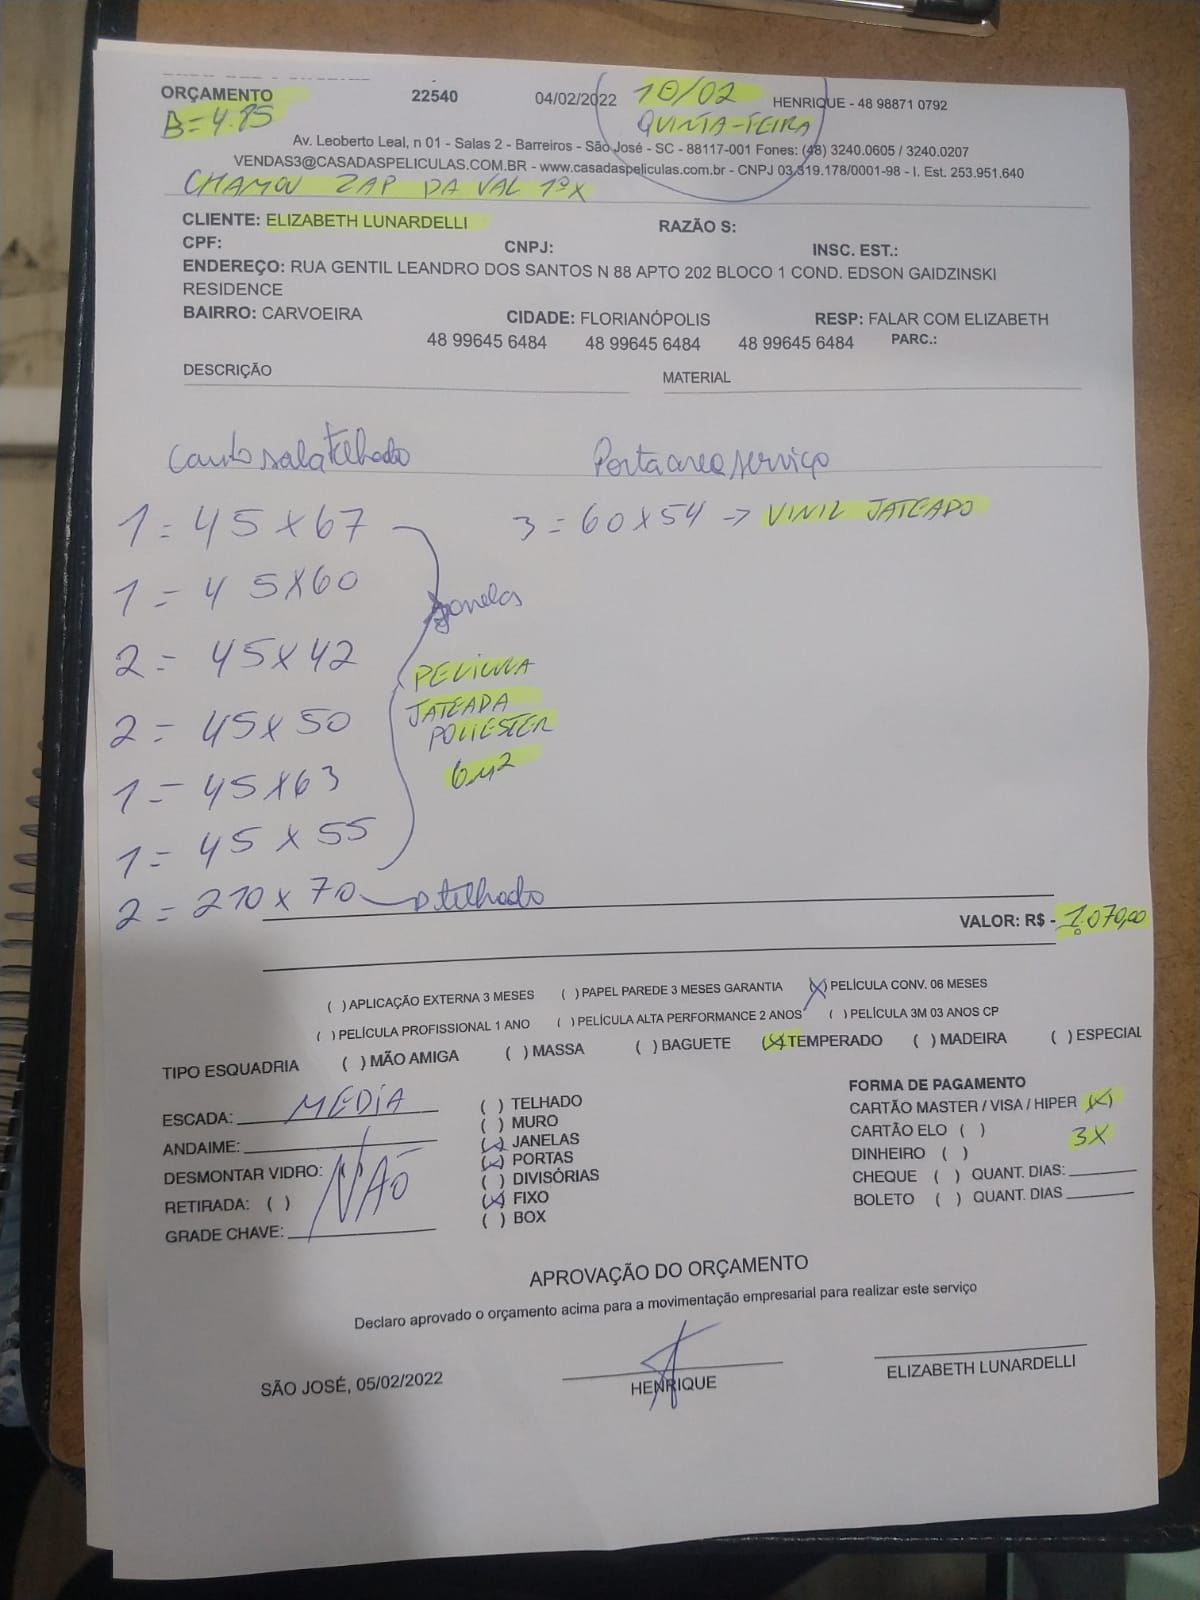 ORÇAMENTO 22540 04/02/2022 10/02 HENRIQUE - 48 98871 0792
B=4.85 QUINTA-FEIRA
Av. Leoberto Leal, n 01 - Salas 2 - Barreiros - São José - SC - 88117-001 Fones: (48) 3240.0605 / 3240.0207
VENDAS3@CASADASPELICULAS.COM.BR - www.casadaspeliculas.com.br - CNPJ 03.319.178/0001-98 - I. Est. 253.951.640
CHAMOU ZAP DA VAL 1ºX
CLIENTE: ELIZABETH LUNARDELLI RAZÃO S:
CPF: CNPJ: INSC. EST.:
ENDEREÇO: RUA GENTIL LEANDRO DOS SANTOS N 88 APTO 202 BLOCO 1 COND. EDSON GAIDZINSKI
RESIDENCE
BAIRRO: CARVOEIRA CIDADE: FLORIANÓPOLIS RESP: FALAR COM ELIZABETH
48 99645 6484 48 99645 6484 48 99645 6484 PARC.:
DESCRIÇÃO MATERIAL
Canto sala telhado Porta area serviço
1 = 45 x 67 3 = 60 x 54 -> VINIL JATEADO
1 = 45 x 60 janelas
2 = 45 x 42 PELICULA
2 = 45 x 50 JATEADA
POLIESTER
1 = 45 x 63 6m2
1 = 45 x 55
2 = 210 x 70 telhado
VALOR: R$ - 1.070,00
( ) APLICAÇÃO EXTERNA 3 MESES ( ) PAPEL PAREDE 3 MESES GARANTIA (X) PELÍCULA CONV. 06 MESES
( ) PELÍCULA PROFISSIONAL 1 ANO ( ) PELÍCULA ALTA PERFORMANCE 2 ANOS ( ) PELÍCULA 3M 03 ANOS CP
TIPO ESQUADRIA ( ) MÃO AMIGA ( ) MASSA ( ) BAGUETE (X) TEMPERADO ( ) MADEIRA ( ) ESPECIAL
ESCADA: MEDIA ( ) TELHADO FORMA DE PAGAMENTO
( ) MURO CARTÃO MASTER / VISA / HIPER (X)
ANDAIME: (X) JANELAS CARTÃO ELO ( ) 3X
DESMONTAR VIDRO: NÃO (X) PORTAS DINHEIRO ( )
( ) DIVISÓRIAS CHEQUE ( ) QUANT. DIAS:
RETIRADA: ( ) (X) FIXO BOLETO ( ) QUANT. DIAS
GRADE CHAVE: ( ) BOX
APROVAÇÃO DO ORÇAMENTO
Declaro aprovado o orçamento acima para a movimentação empresarial para realizar este serviço
SÃO JOSÉ, 05/02/2022 HENRIQUE ELIZABETH LUNARDELLI